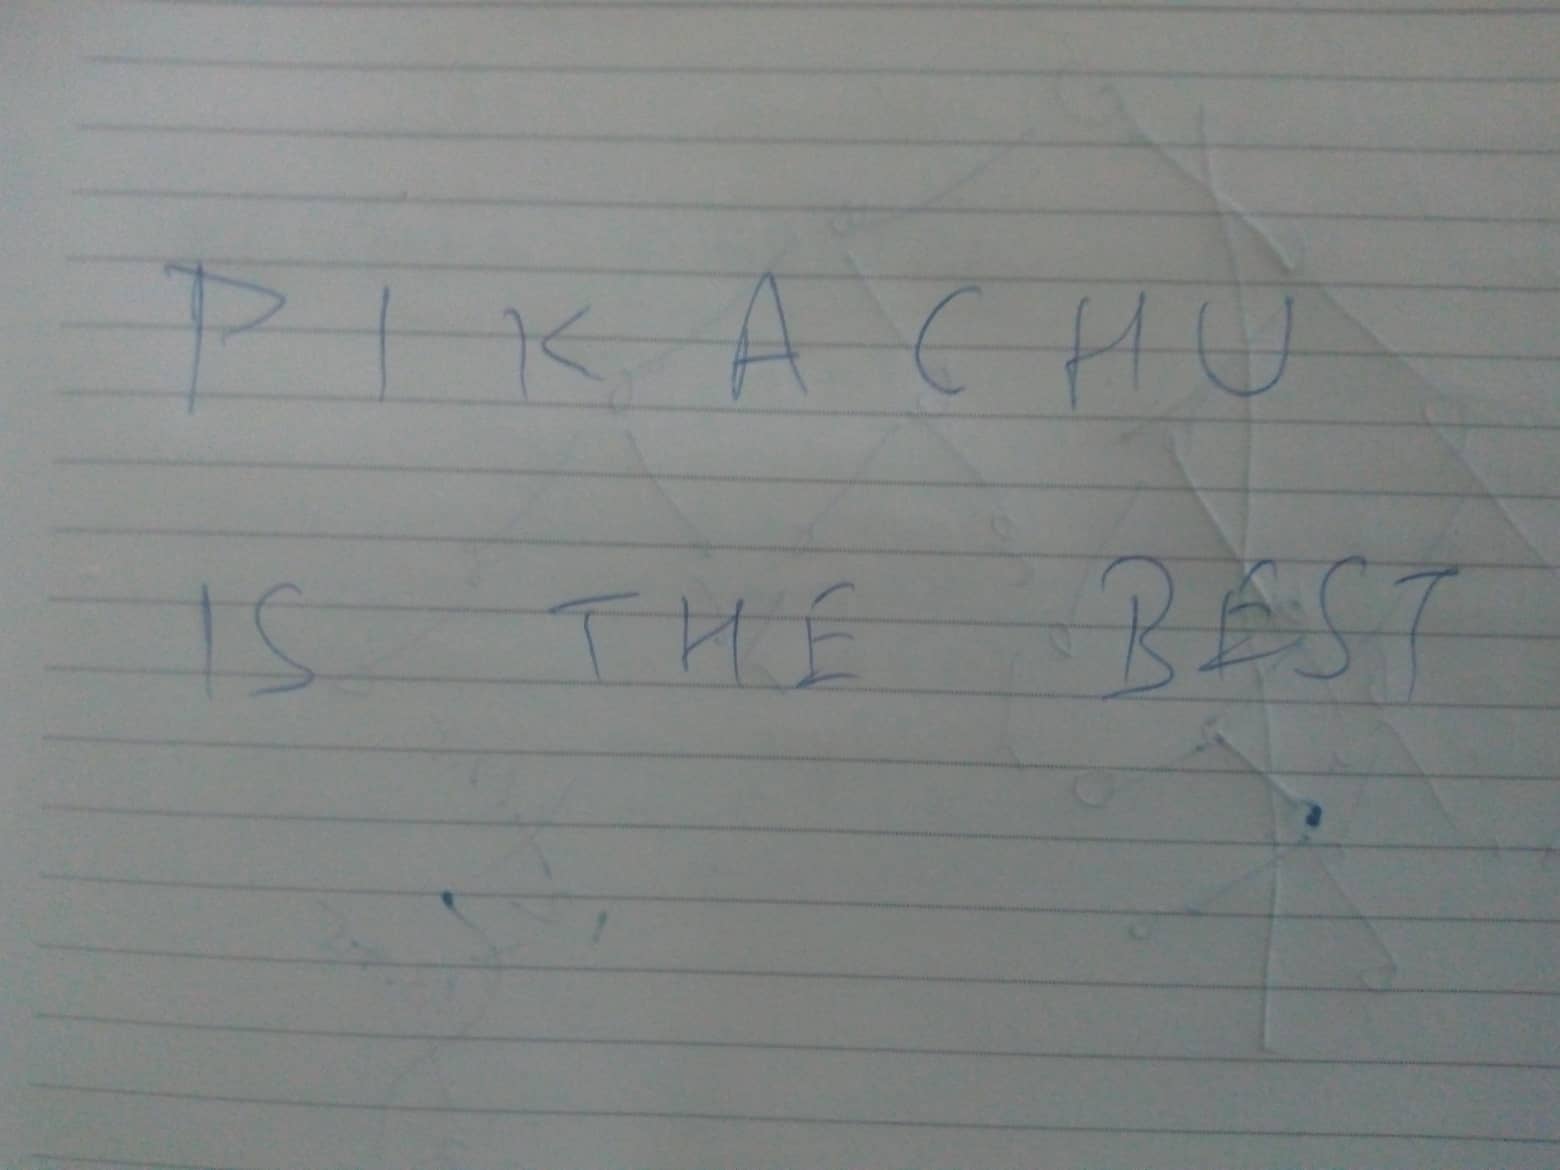 PIKACHU
IS THE BEST